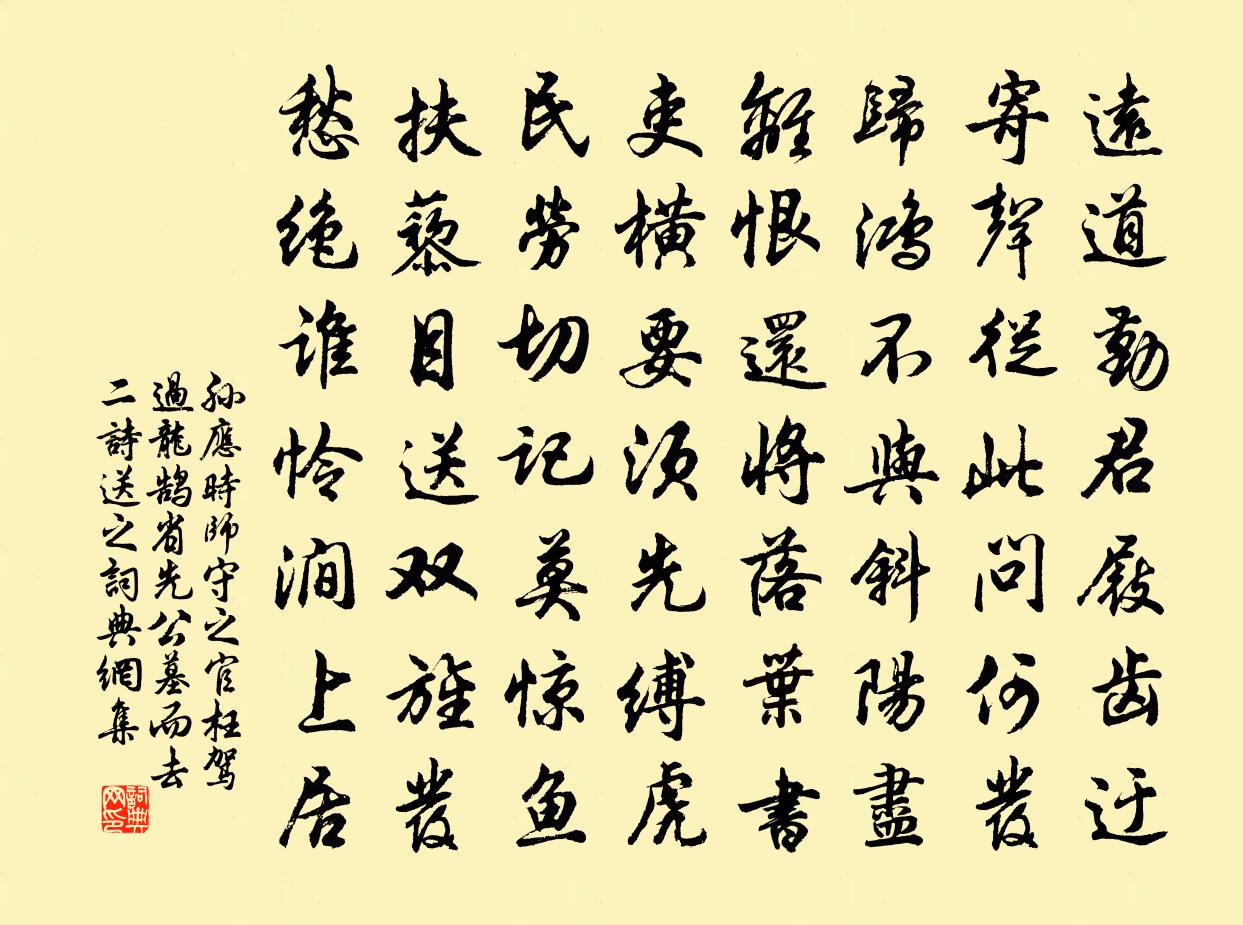 遠道勤君屐齒迂
寄聲從此問何發
歸鴻不與斜陽盡
離恨還將落葉書
吏橫要須先縛虎
民勞切記莫惊魚
扶藜目送双旌發
愁絶誰怜澗上居
孫應時師守之官枉駕
過龍鵠省先公墓而去
二詩送之詞典網集
詞典网印